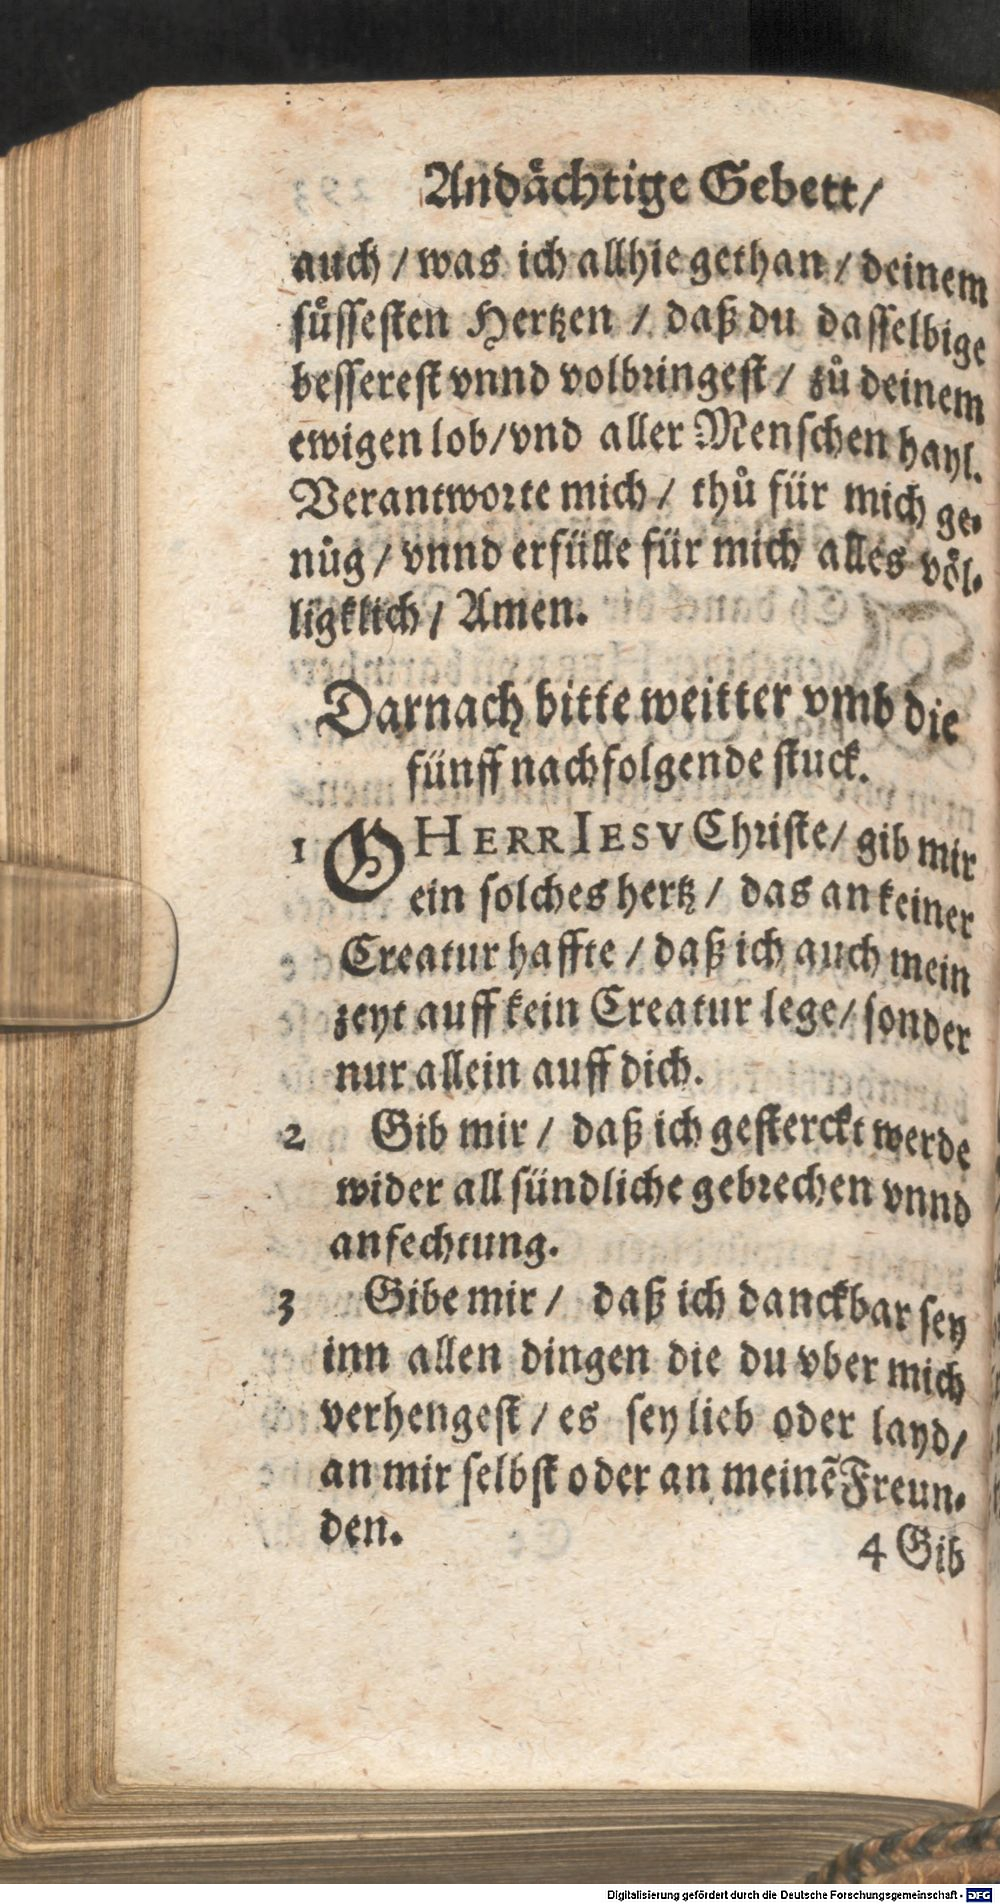 Andaͤchtige Gebett/
auch / was ich allhie gethan / deinem
suͤssesten Hertzen / daß du dasselbige
besserest vnnd volbringest / zů deinem
ewigen lob/ vnd aller Menschen hayl.
Verantworte mich / thů für mich ge-
nůg / vnnd erfülle für mich alles voͤl-
ligklich / Amen.
Darnach bitte weitter vmb die
fünff nachfolgende stuck.
1 O HERR IESV Christe/ gib mir
ein solches hertz / das an keiner
Creatur haffte / daß ich auch mein
zeyt auff kein Creatur lege/ sonder
nur allein auff dich.
2 Gib mir / daß ich gesterckt werde
wider all sündliche gebrechen vnnd
anfechtung.
3 Gibe mir / daß ich danckbar sey
inn allen dingen die du vber mich
verhengest / es sey lieb oder layd/
an mir selbst oder an meinẽ Freun-
den.
4 Gib
Digitalisierung gefördert durch die Deutsche Forschungsgemeinschaft - DFG